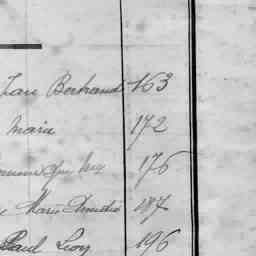 Jean Bertrand 163
Marie 172
176
Marie Amédée 187
Paul Leon 196